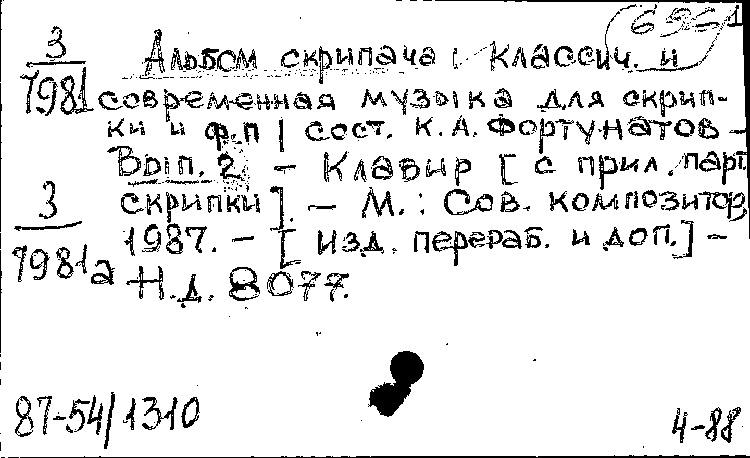 6961
З Альбом скрипача: Классич. и
7981 современная музыка для скрип-
ки и ф.п / сост. К.А. Фортунатов -
Вып. 2 - Клавир [ с прил. парт.
З скрипки ]. - М.: Сов. композитор,
1987. - [ изд. перераб. и доп.] -
7981а Н.д. 8077.
87-54/1310
4-88